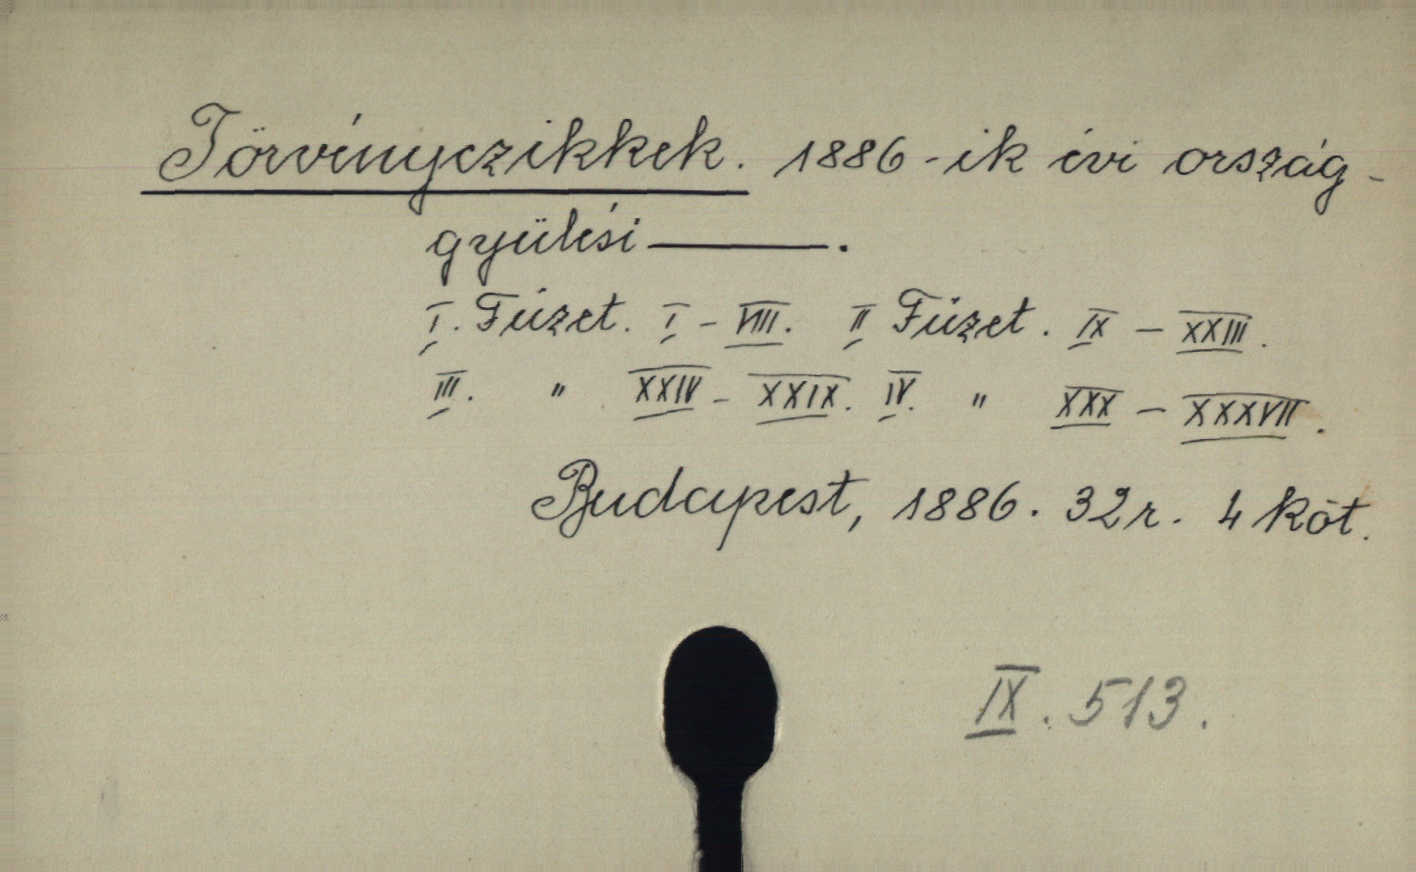 Törvényczikkek. 1886-ik évi ország-
gyülési ———.
I. Füzet. I - VIII. II Füzet. IX — XXIII.
III. " XXIV - XXIX. IV. " XXX — XXXVII.
Budapest, 1886. 32r. 4 köt.
IX. 513.